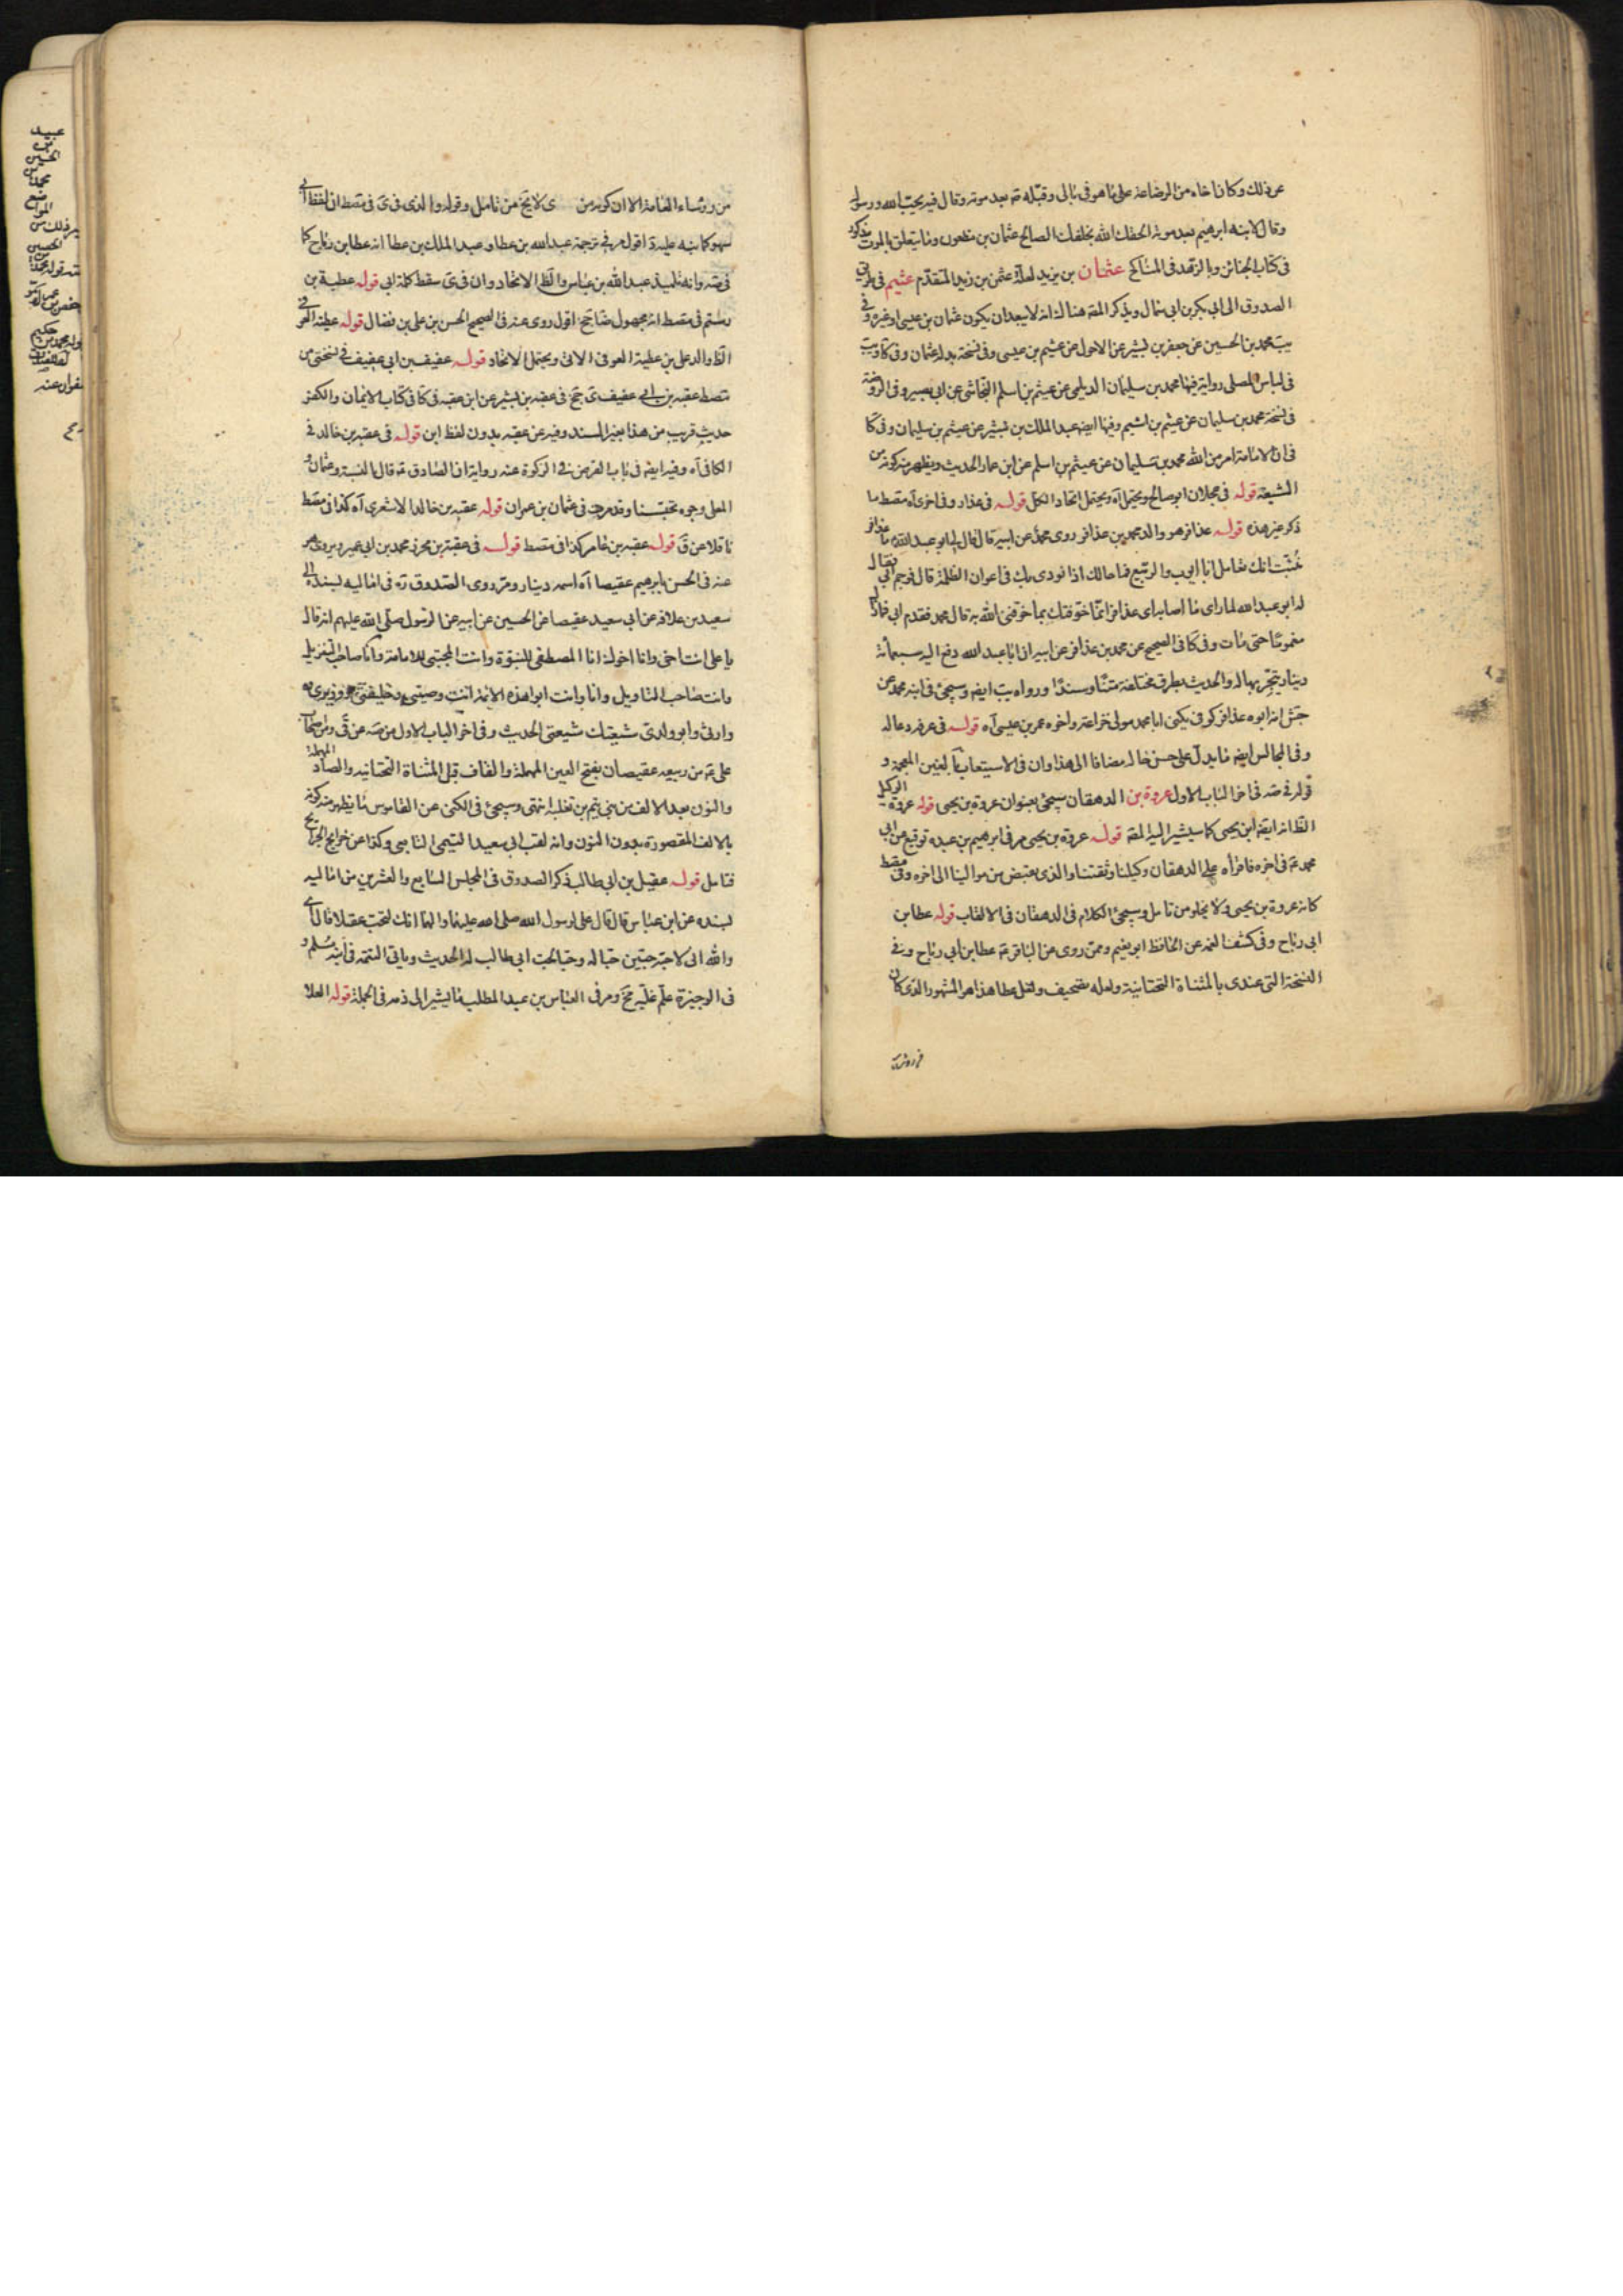 عن ذلك وكان اخاه من الرضاعة على ما هو في بالي وقبّله ص بعد موته وقال فيه يحبّ الله ورسوله
وقال لابنه ابرهيم بعد موته الحقك الله بخلفك الصالح عثمان بن مظعون وما يتعلق بالموت مذكور
في كتاب الجنائز وبالزهد في المناكح عثمان بن يزيد لعله عثمن بن زيد المتقدّم عثيم في طريق
الصدوق الى ابي بكر بن ابي سمال ويذكر المصه هناك انه لا يبعد ان يكون عثمان بن عيسى او غيره وفي
يب محمد بن الحسين عن جعفر بن بشير عن الاحول عن عثيم بن عيسى وفي نسخة بدله عثمان وفي كا ويب
في لباس المصلى رواية فيها محمد بن سليمان الديلمى عن عيثم بن اسلم النجاشى عن ابي بصير وفي الروضة
في نسخة محمد بن سليمان عن عيثم بن اشيم وفيها ايضا عبد الملك بن بشير عن عيثم بن سليمان وفي كا
في ان الامامة امر من الله محمد بن سليمان عن عيثم بن اسلم عن ابن عمار الحديث ويظهر منه كونه من
الشيعة قوله في عجلان ابو صالح ويحتمل آه ويحتمل اتحاد الكل قوله في عذار وفي اخرى آه مصط ما
ذكر غير هذه قوله عذافر هو والد محمد بن عذافر روى محمد عن ابيه قال قال لي ابو عبد الله يا عذافر
نبّئت انك تعامل ابا ايوب والربيع فما حالك اذا نودى بك في اعوان الظلمة قال فوجم ابي فقال
له ابو عبد الله لما راى ما اصابه اى عذافر انما خوفتك بما خوفنى الله به قال محمد فقدم ابي فما زال
مغموما حتى مات وفي كا في الصحيح عن محمد بن عذافر عن ابيه ان ابا عبد الله دفع اليه سبعمائة
دينار يتجر بها له والحديث بطرق مختلفة متنا وسندا ورواه يب ايضا وسيجئ في ابنه محمد عن
جش انه ابوه عذافر كوفي يكنى ابا محمد مولى خزاعة واخوه عمر بن عيسى آه قوله في عرفه دعا له
وفي المجالس ايضا ما يدل على حسن حاله مضافا الى هذا وان في الاستيعاب بالغين المعجمة و
قوله في صه في اخر الباب الاول عروة بن الدهقان سيجئ بعنوان عروة بن يحيى قوله عروة الوكيل
الظ انه ايضا ابن يحيى كما سيشير اليه المصه قوله عروة بن يحيى مر في ابرهيم بن عبده توقيع عن ابي
محمد ع في اخره فاقرأه على الدهقان وكيلنا وثقتنا والذى يقبض من موالينا الى اخره وفي مصط
كانه عروة بن يحيى ولا يخلو من تامل وسيجئ الكلام في الدهقان في الالقاب قوله عطا بن
ابي رباح وفي كشف الغمه عن الحافظ ابو نعيم وممن روى عن الباقر ع عطا بن ابي رباح وفي
النسخة التى عندى بالمثناة التحتانية ولعله تصحيف ولعل عطا هذا هو المشهور الذى كان
من رؤساء
من رؤساء العامة الا ان كونه من ى لا يخ من تامل وقوله والذى في ى في مصط ان لفظ ابي
سهو كما نبه عليه ة اقول مر في ترجمة عبد الله بن عطا و عبد الملك بن عطا انه عطا بن رباح كما
في صه وانه تلميذ عبد الله بن عباس والظ الاتحاد وان في ى سقط كلمة ابي قوله عطية بن
رستم في مصط انه مجهول ضا جخ اقول روى عنه في الصحيح الحسن بن على بن فضال قوله عطية العوفي
الظ والد على بن عطية العوفي الاتى ويحتمل الاتحاد قوله عفيف بن ابي عفيف في نسختى من
مصط عقبه بن ابي عفيف ى جخ في عقبه بن بشير عن ابن عقبه في كا في كتاب الايمان والكفر
حديث قريب من هذا بغير السند وفيه عن عقبه بدون لفظ ابن قوله في عقبه بن خالد في
الكافي آه وفيه ايضا في باب القرض في الزكوة عنه رواية ان الصادق ع قال بالنسبة وعثمان و
المعلى وجوه تحبنا وقد مرت في عثمان بن عمران قوله عقبه بن خالد الاشعرى آه كذا في مصط
ناقلا عن ق قوله عقبه بن عامر كذا في مصط قوله في عقبة بن محرز محمد بن ابي عمير ويروى هو
عنه في الحسن بابرهيم عقيصا آه اسمه دينار ومر روى الصدوق ره في اماليه بسنده الى
سعيد بن علاقة عن ابي سعيد عقيصا عن الحسين عن ابيه عن الرسول صلى الله عليهم انه قال
يا على انت اخى وانا اخوك انا المصطفى للنبوة وانت المجتبى للامامة وانا صاحب التنزيل
وانت صاحب التاويل وانا وانت ابوا هذه الامّة انت وصيى وخليفتى ووزيرى و
وارثى وابو ولدى شيعتك شيعتى الحديث وفي اخر الباب الاول من صه عن قى ومن اصحاب
على ع من ربيعه عقيصان بفتح العين المهملة والقاف قبل المثناة التحتانيه والصاد المهملة
والنون بعد الالف من بنى تيم بن ثعلبة انتهى وسيجئ في الكنى عن القاموس ما يظهر منه كونه
بالالف المقصورة بدون النون وانه لقب ابي سعيد التيمى التابعى وكذا عن خرايج الجرايح
فتامل قوله عقيل بن ابي طالب ذكر الصدوق في المجلس السابع والعشرين من اماليه
بسنده عن ابن عباس قال قال على لرسول الله صلى الله عليهما والهما انك لتحب عقيلا قال اى
والله انى لاحبه حبّين حبا له وحبا لحب ابي طالب له الحديث وياتى التتمة في ابنه مسلم و
في الوجيزة علّم عليه مخ ومر في العباس بن عبد المطلب ما يشير الى ذمه في الجملة قوله العلا
عبيد
بن
الحسين
محمد
حكيم